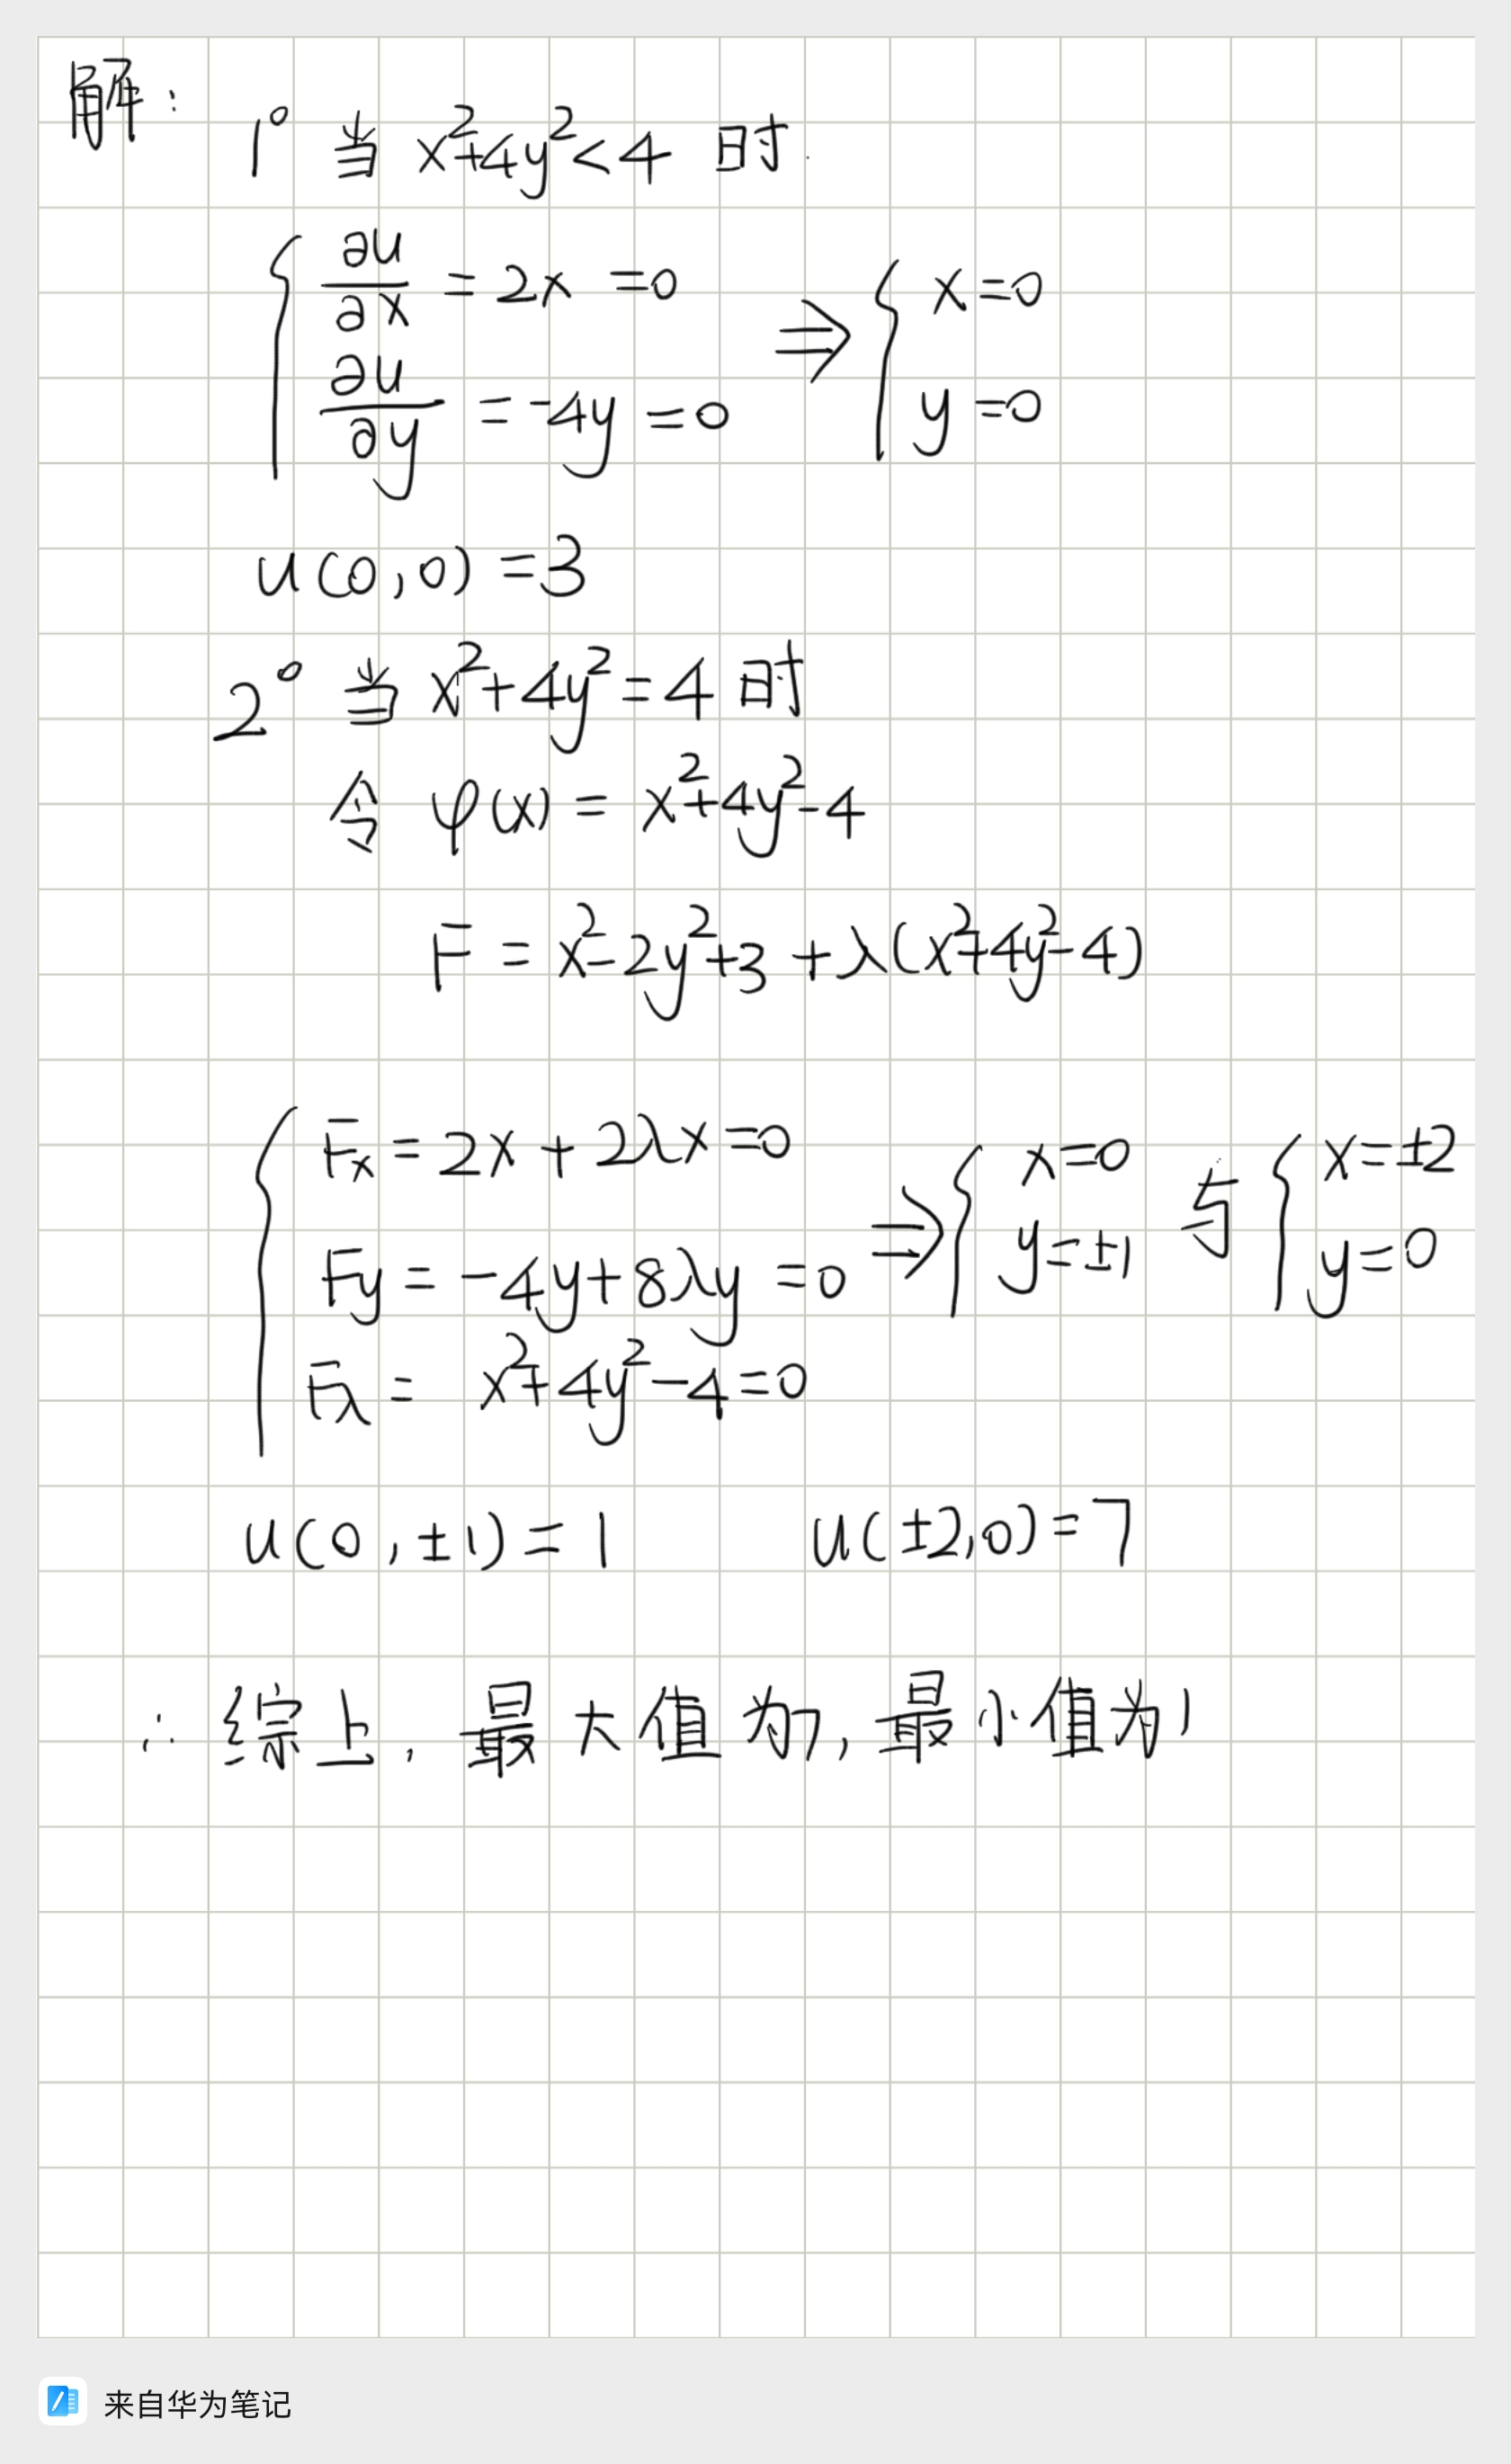 解：
1° 当 x²+4y²<4 时.
{ ∂u/∂x = 2x = 0
∂u/∂y = -4y = 0 ⇒ { x=0
y=0
u(0,0)=3
2° 当 x²+4y²=4 时
令 φ(x) = x²+4y²-4
F = x²-2y²+3+λ(x²+4y²-4)
{ Fx = 2x+2λx=0
Fy = -4y+8λy=0 ⇒ { x=0
y=±1 与 { x=±2
y=0
Fλ = x²+4y²-4=0
u(0,±1)=1 u(±2,0)=7
∴ 综上，最大值为7，最小值为1
来自华为笔记